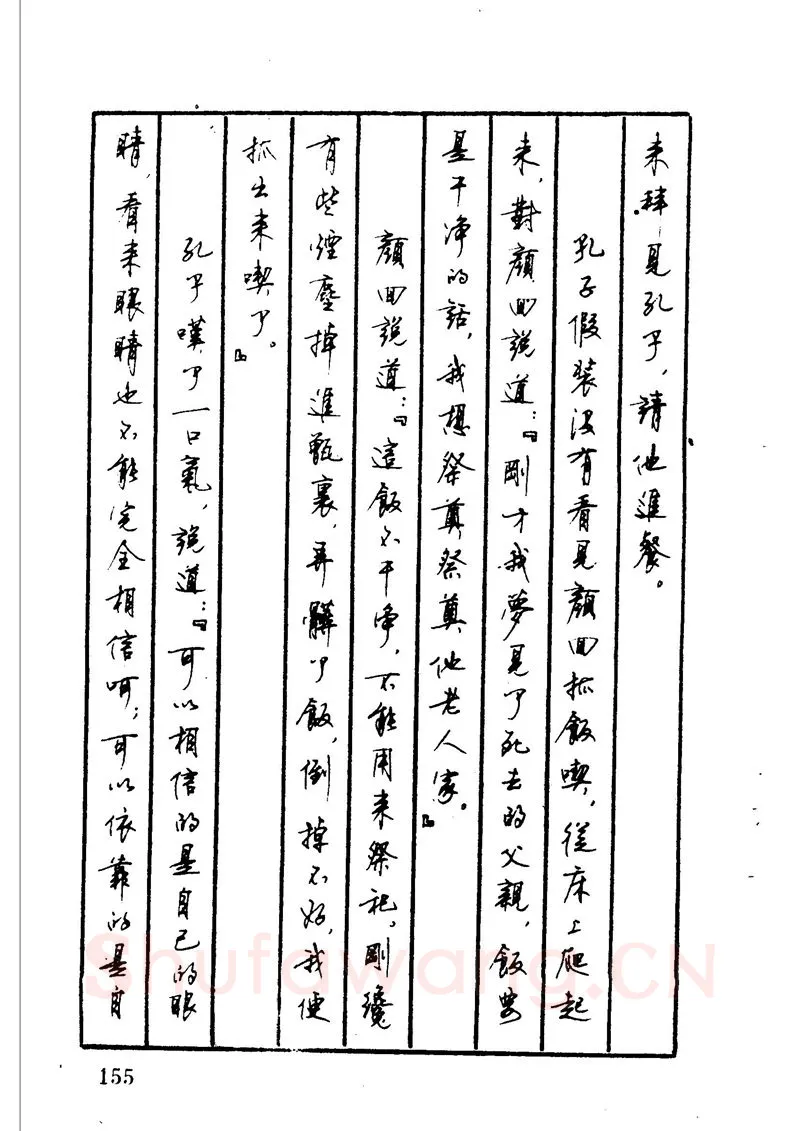 来拜見孔子，請他進餐。
孔子假装没有看見顔回抓飯喫，從床上爬起
来，對顔回説道：『剛才我夢見了死去的父親，飯要
是干净的話，我想祭奠祭奠他老人家。』
顔回説道：『這飯不干净，不能用来祭祀，剛纔
有些煙塵掉進甑裏，弄髒了飯，倒掉不好，我便
抓出来喫了。』
孔子嘆了一口氣，説道：『可以相信的是自己的眼
睛，看来眼睛也不能完全相信呵；可以依靠的是自
155
Shufawang.CN